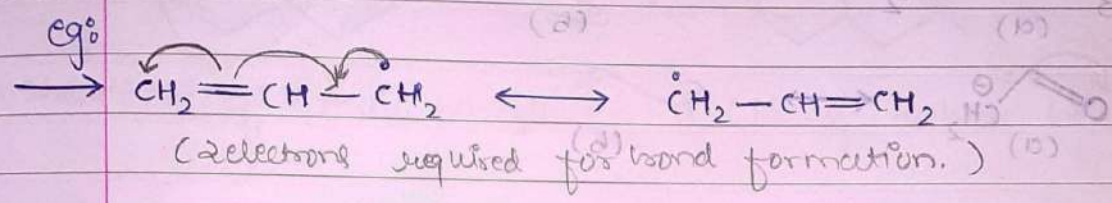 eg:
→ CH₂ = CH – ĊH₂ ⟷ ĊH₂ – CH = CH₂
(2electrons required for bond formation.)